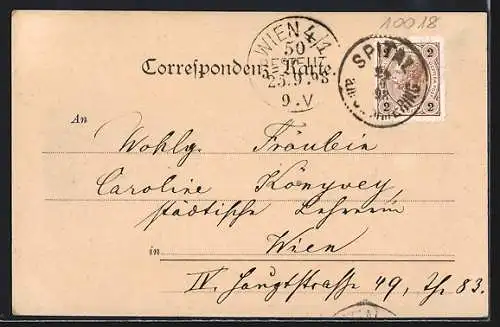 10018
WIEN 4/1
50
BESTELLT
25.9.98
9.V
SPITAL
am SEMMERING
2 2
2 2
Correspondenz-Karte.
An
Wohlg. Fräulein
Caroline Könyvey,
städtische Lehrerin
in Wien
IV. Hauptstrasse 49, Th. 83.